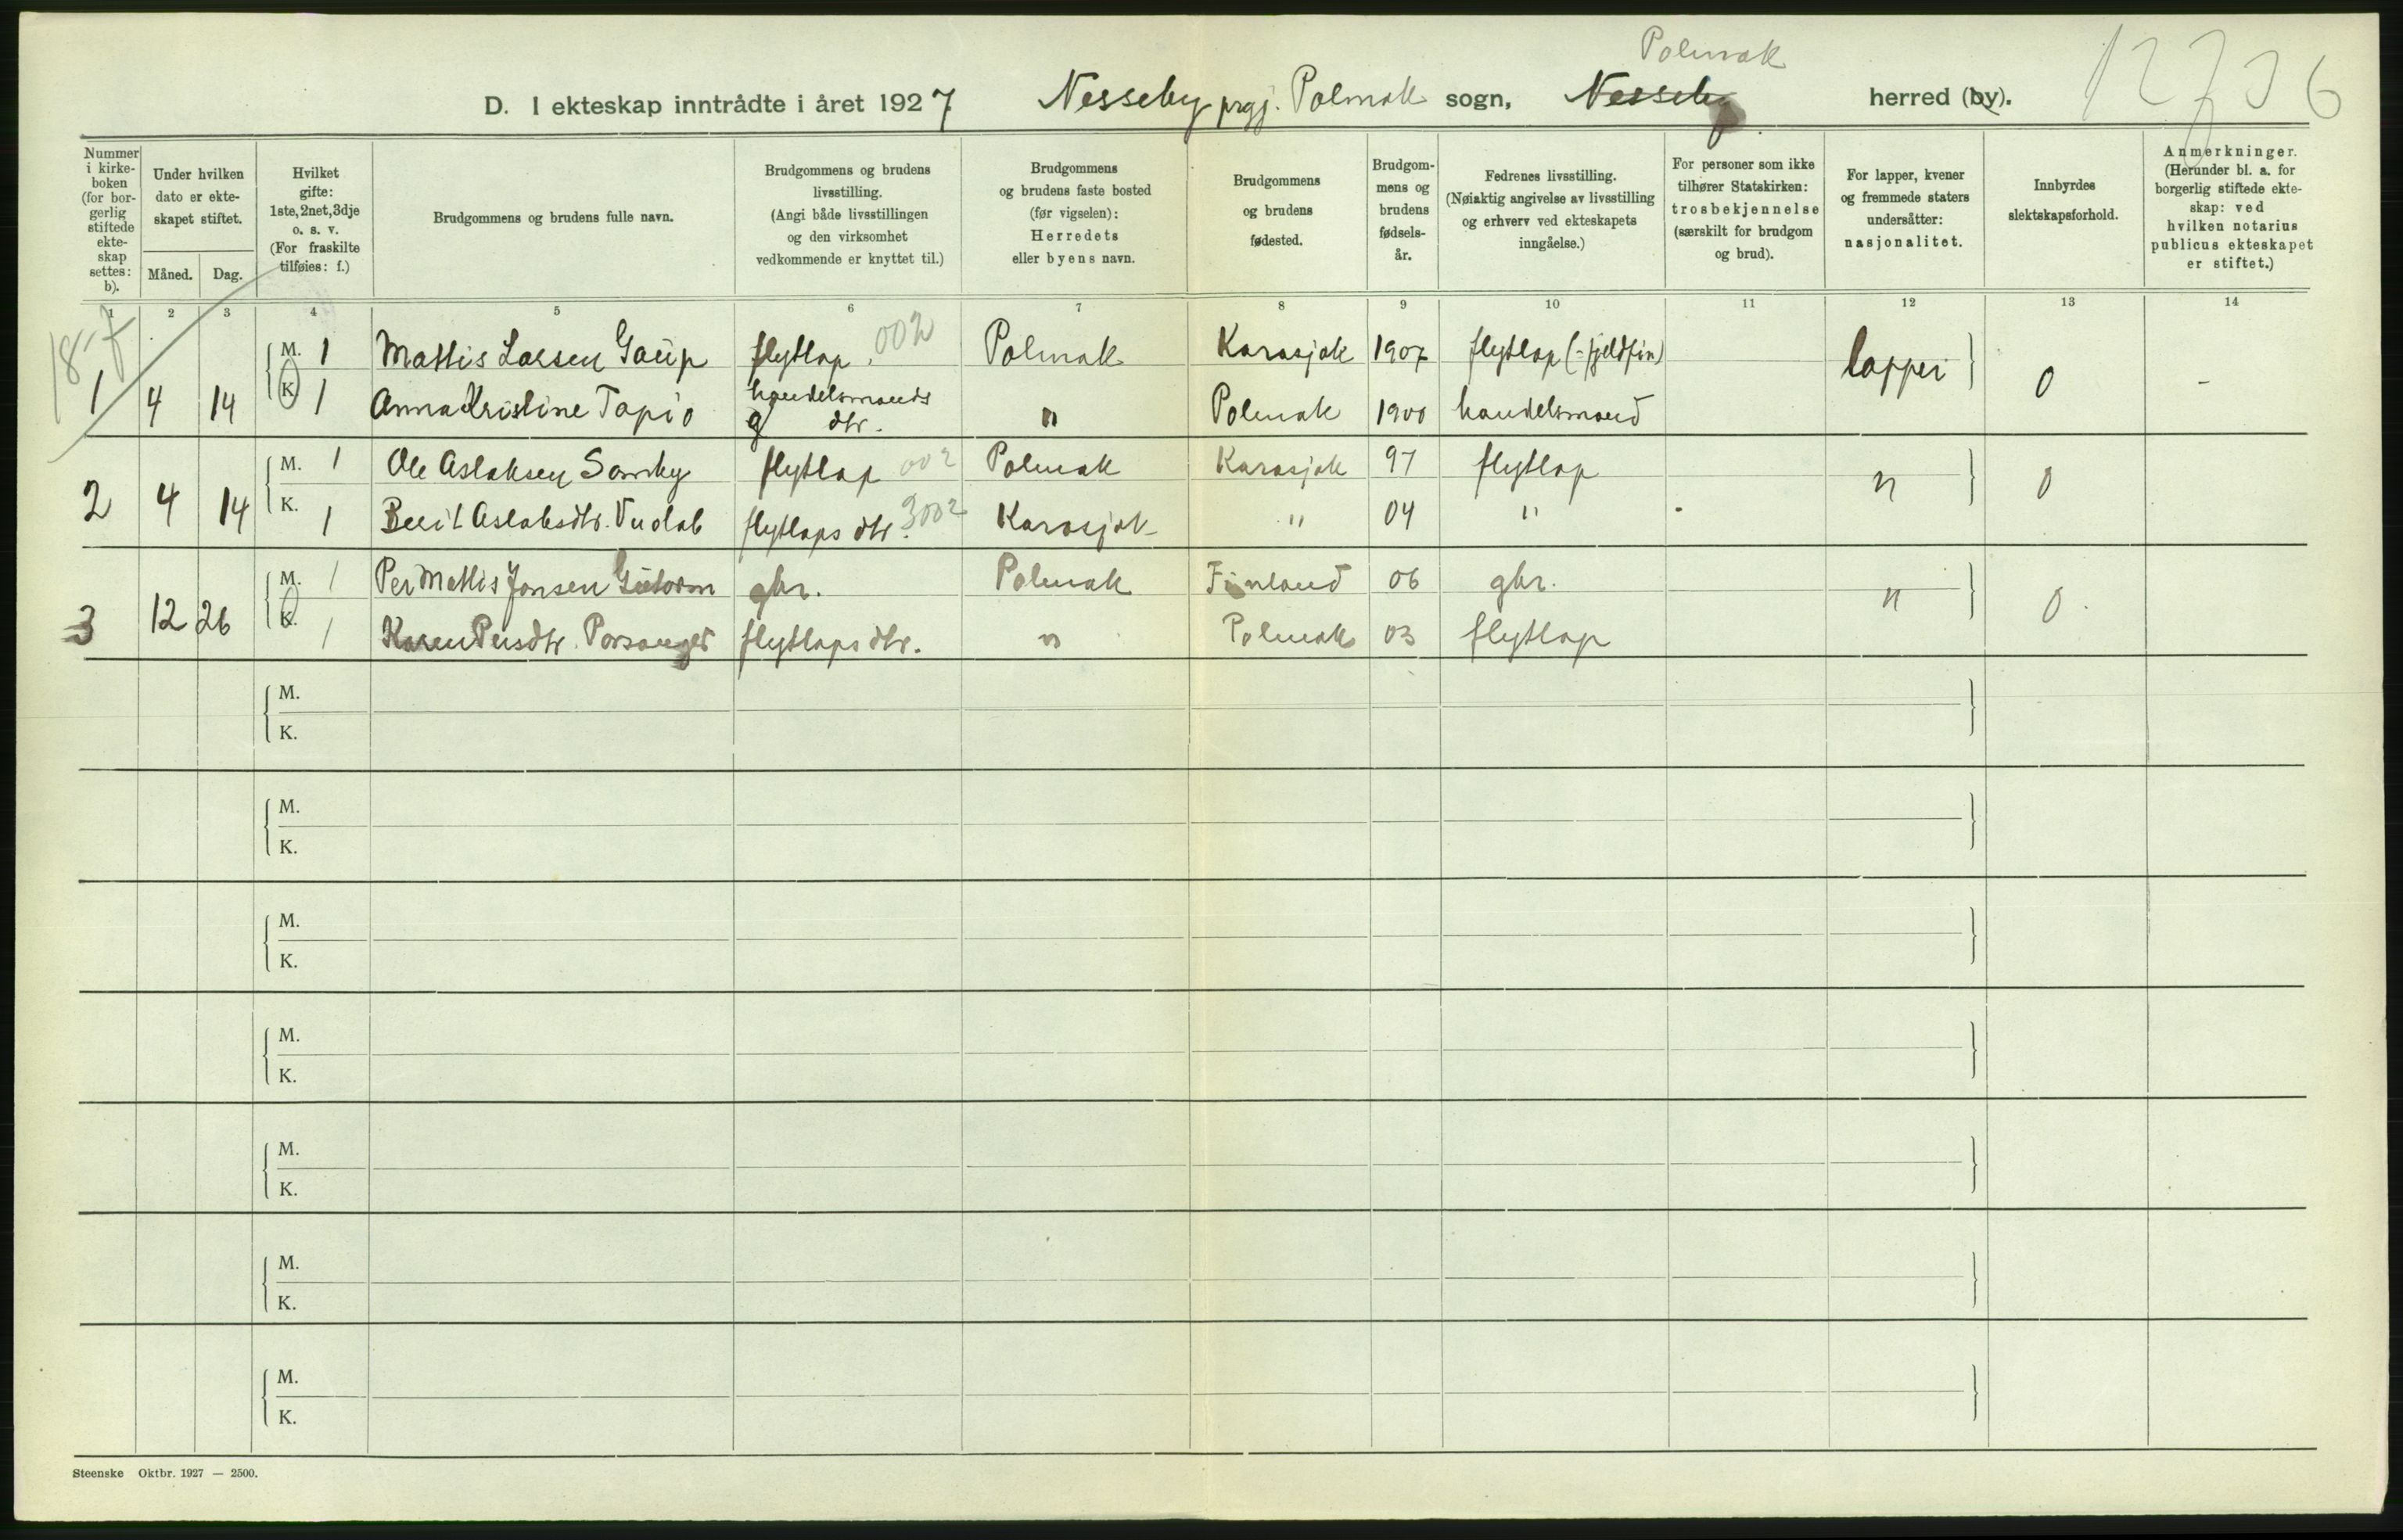 Polmak
D. I ekteskap inntrådte i året 1927 Nesseby prgj. Polmak sogn, Nesseby herred (by).
Nummer i kirke-boken (for bor-gerlig stiftede ekte-skap settes: b).
Under hvilken dato er ekte-skapet stiftet.
Måned. Dag.
Hvilket gifte: 1ste, 2net, 3dje o. s. v. (For fraskilte tilføies: f.)
Brudgommens og brudens fulle navn.
Brudgommens og brudens livsstilling. (Angi både livsstillingen og den virksomhet vedkommende er knyttet til.)
Brudgommens og brudens faste bosted (før vigselen): Herredets eller byens navn.
Brudgommens og brudens fødested.
Brudgom-mens og brudens fødsels-år.
Fedrenes livsstilling. (Nøiaktig angivelse av livsstilling og erhverv ved ekteskapets inngåelse.)
For personer som ikke tilhører Statskirken: trosbekjennelse (særskilt for brudgom og brud).
For lapper, kvener og fremmede staters undersåtter: nasjonalitet.
Innbyrdes slektskapsforhold.
Anmerkninger. (Herunder bl. a. for borgerlig stiftede ekte-skap: ved hvilken notarius publicus ekteskapet er stiftet.)
1 2 3 4 5 6 7 8 9 10 11 12 13 14
M. 1 Mattis Larsen Gaup flytlap 002 Polmak Karasjok 1907 flytlap (= fjeldfin) lapper
1 4 14 K 1 Anna Kristine Tapio handelsmands dtr. " Polmak 1900 handelsmand 0 -
M. 1 Ole Aslaksen Somby flytlap 002 Polmak Karasjok 97 flytlap
2 4 14 K. 1 Berit Aslaksdtr. Vuolab flytlaps dtr. 3002 Karasjok " 04 " " 0
M. 1 Per Mattis Jonsen Guttorm gbr. Polmak Finland 06 gbr.
3 12 26 K. 1 Karen Persdtr. Porsanger flytlaps dtr. " Polmak 03 flytlap " 0
M.
K.
M.
K.
M.
K.
M.
K.
M.
K.
M.
K.
M.
K.
Steenske Oktbr. 1927 — 2500.